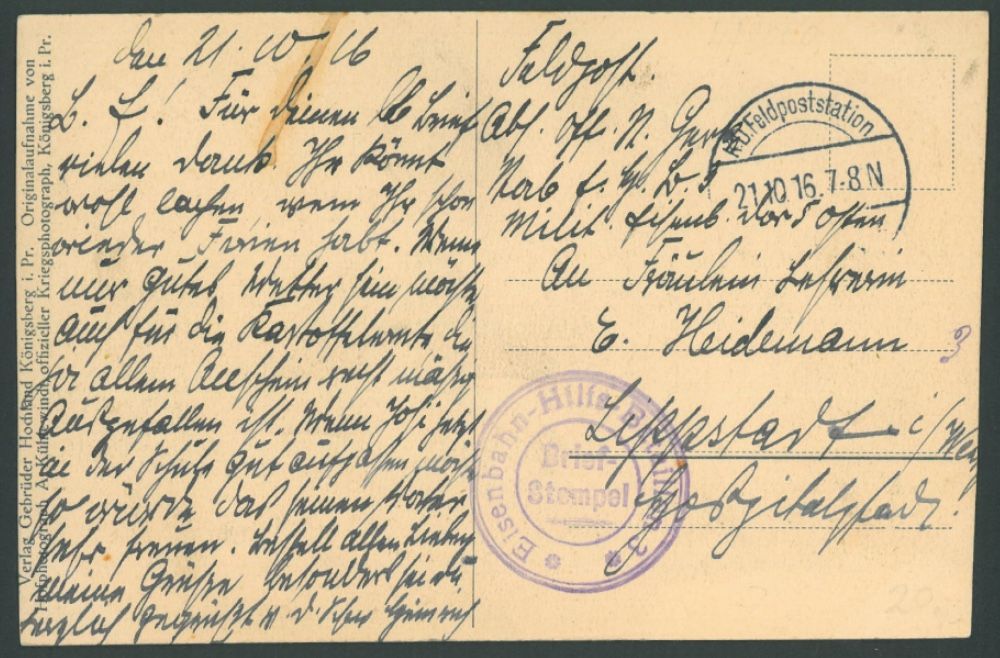 Verlag Gebrüder Hochland Königsberg i. Pr. Originalaufnahme von
Hofphotograph A. Kühlewindt, offizieller Kriegsphotograph, Königsberg i. Pr.
den 21. 10. 16
L. E! Für deinen lb Brief
vielen Dank. Ihr könnt
wohl lachen wenn Ihr schon
wieder Ferien habt. Wenn
nur gutes Wetter sein möchte
auch für die Kartoffelernte die
ja allem Anschein recht mäßig
ausgefallen ist. Wenn jetzt
in der Schule gut aufpassen möchte
so würde das seinen Vater
sehr freuen. Bestell allen Lieben
meine Grüße besonders sei du
herzlich gegrüßt v. d. Heinrich
Feldpost.
Abs. Off. N.
Milit. Eisenb. Osten
An Fräulein Lehrerin
E. Heidemann
Lippstadt i/Westf
Hospitalstraße
K.D.Feldpoststation
21.10.16. 7-8 N
Eisenbahn-Hilfs-Bataillon 3
Brief-
Stempel
3
20.